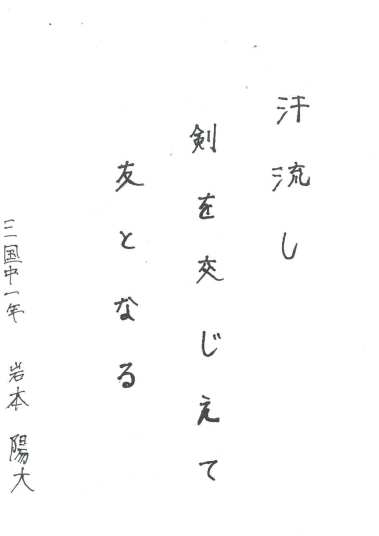 汗流し
剣を交じえて
友となる
三国中一年 岩本 陽大